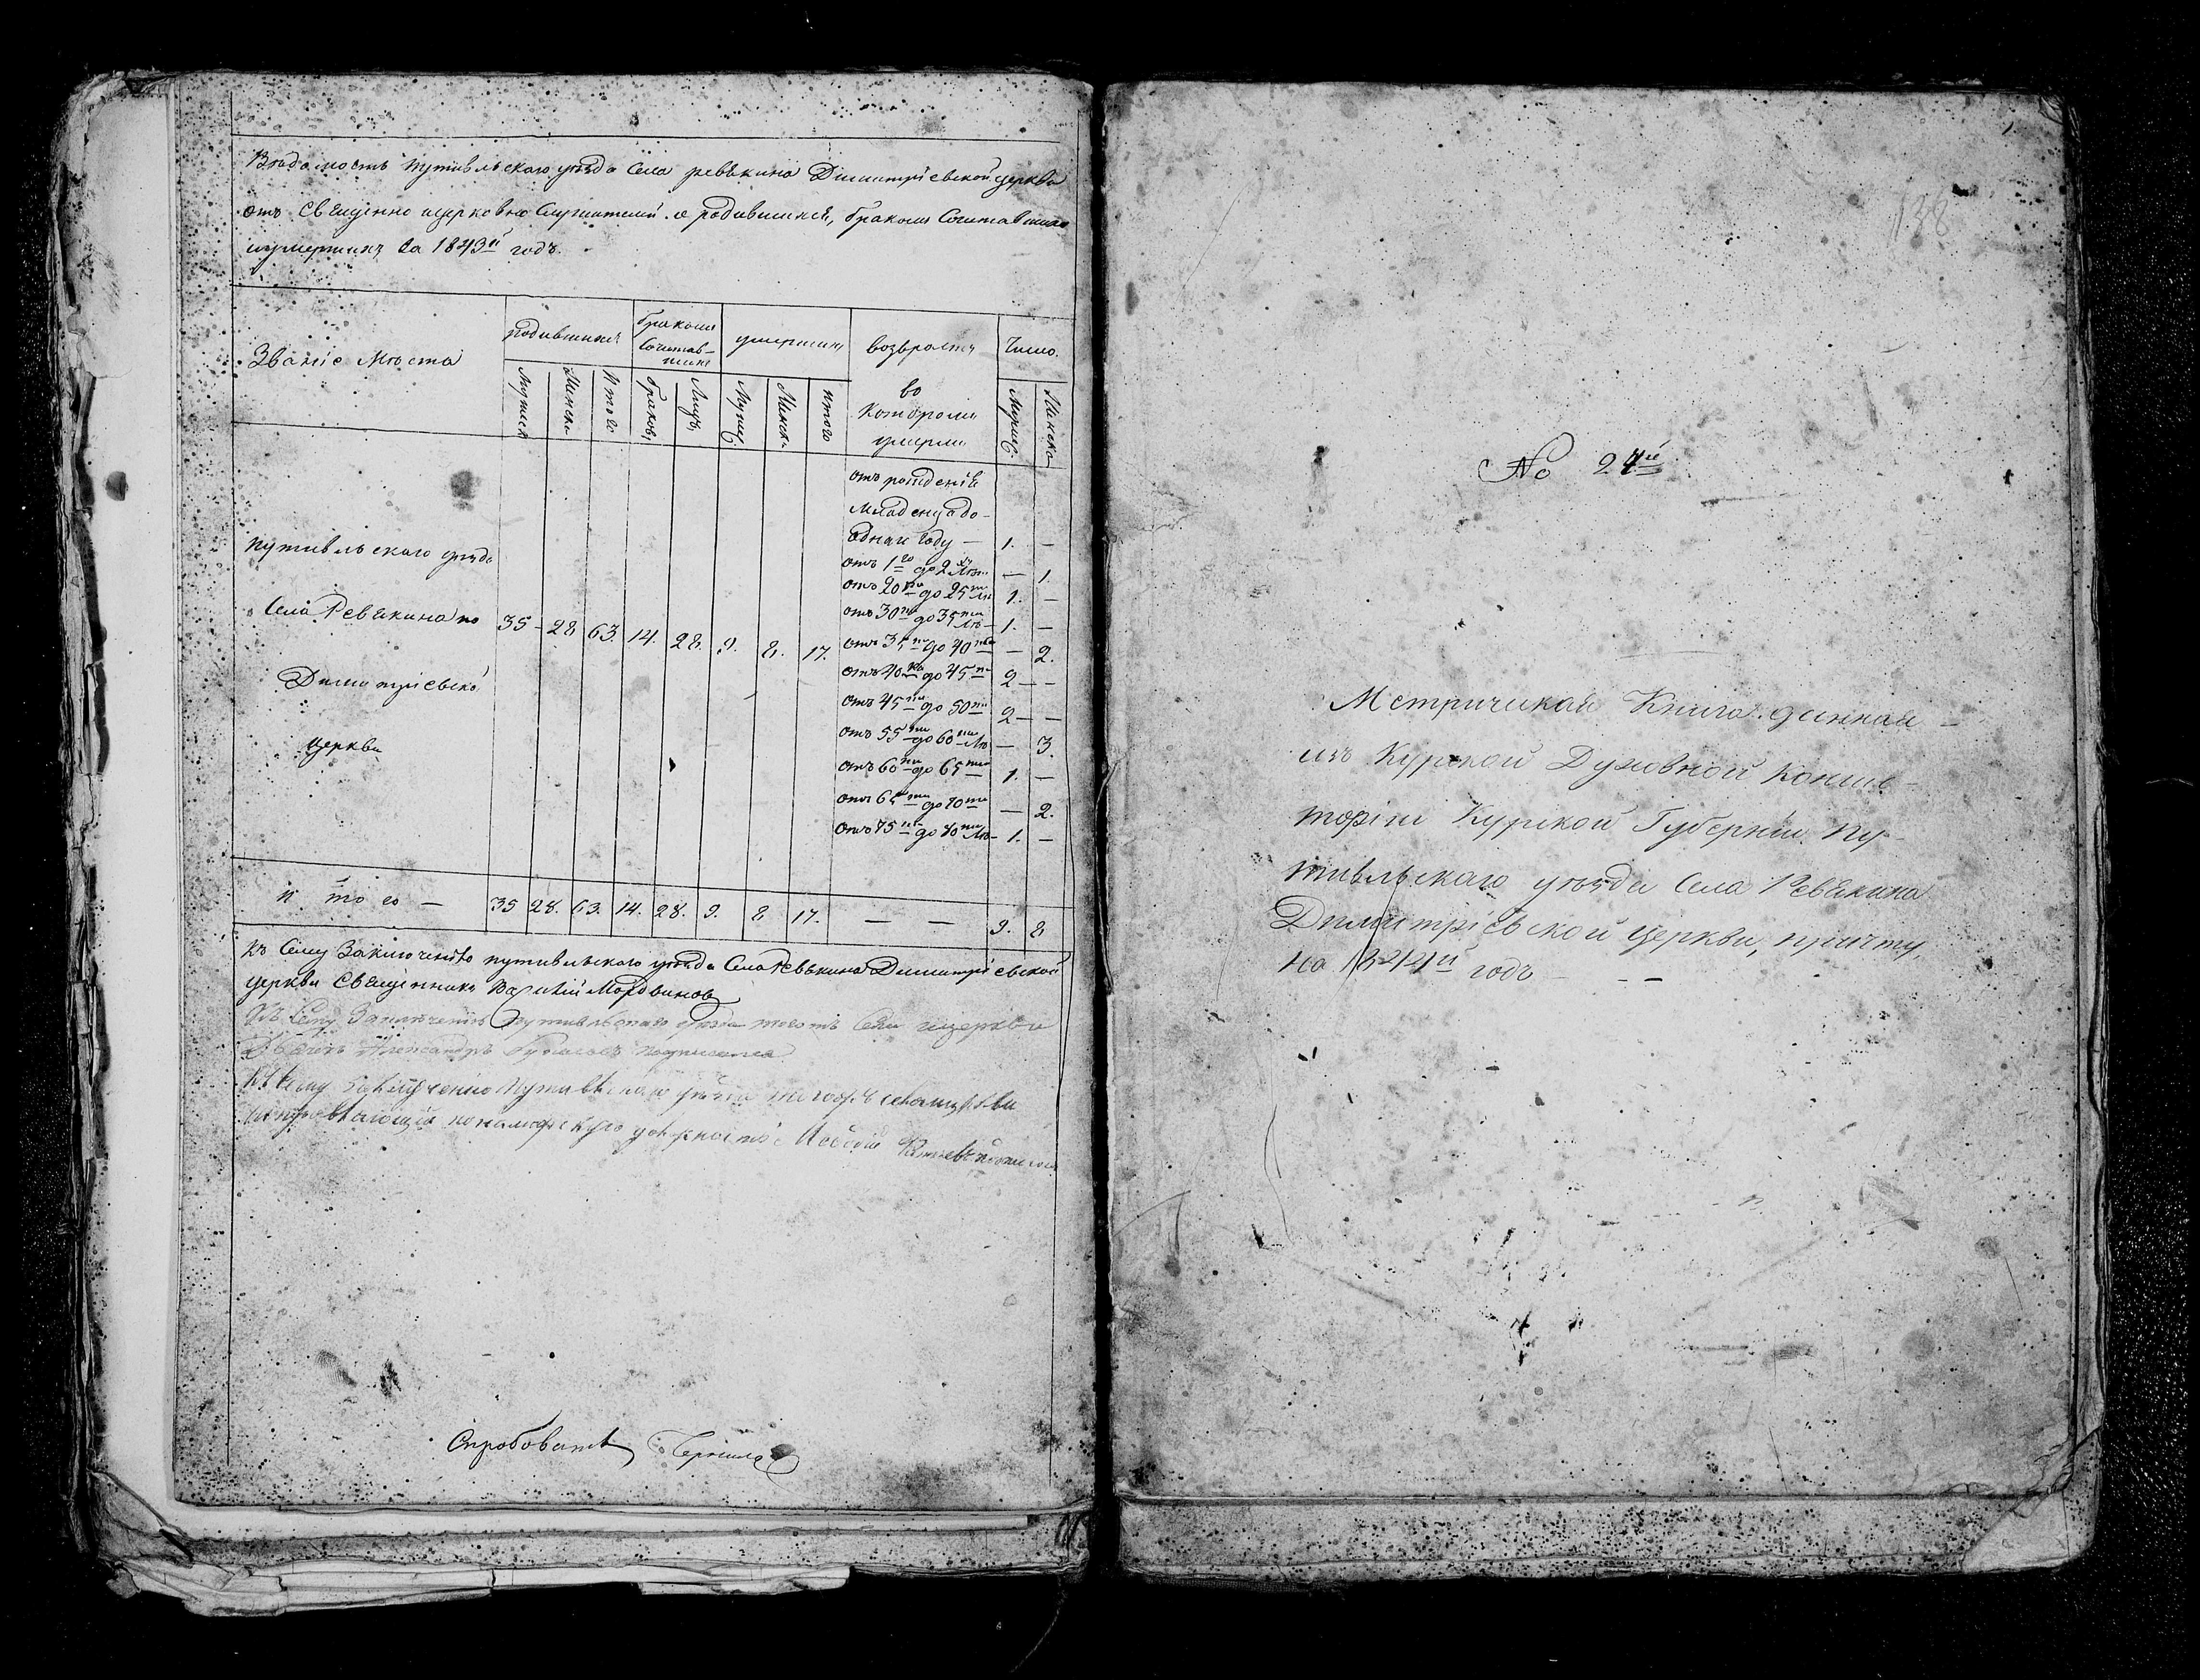 Вѣдомость путивльскаго уѣзда Села ревякина Димитріевской церкви
отъ Священно ицерковно Служителей о родившихся, бракомъ Сочетавшихся
иумершихъ За 1843й годъ.
Званіе Мѣста
родившихся
бракомъ Сочетав-шихся
умершихъ
возврасты во Которомъ умерли
Число.
Мужеск
Женска
Итого
браковъ
Лицъ
Мужес.
Женск.
итого
Мужес.
Женска
путивльскаго уѣзда
Села Ревякина по
Димитріевской
церкви
35 - 28 63. 14. 28. 9. 8. 17.
отъ рожденія
младенца до
однаго году — 1. —
отъ 1го до 2хъ Лѣт. — 1.
отъ 20ти до 25ти Лѣ 1. —
отъ 30ти до 35ти Лѣ — 1. —
отъ 35ти до 40ка — 2.
отъ 40ка до 45ти 2 — —
отъ 45ти до 50ти 2 — —
отъ 55ти до 60ти Лѣ — 3.
отъ 60ти до 65ти 1. —
отъ 65ти до 70ти — 2.
отъ 75ти до 70ти Лѣ — 1. —
и того — 35 28. 63. 14. 28. 9. 8. 17. — — 9. 8
Къ Сему Заключенію путивльскаго уѣзда Села Ревякина Димитріевской
церкви Священникъ Василій Мордвиновъ
Къ Сему Заключенію путивльскаго уѣзда тогожъ Села ицеркви
Александръ подписался
Къ сему Заключенію Путивльскаго уѣзда тогожъ села церкви
исправляющій пономарскую должность Алексій
Спробовать Чернила
138
№ 24й
Метрическая Книга данная —
изъ Курской Духовной Консис-
торіи Курской Губерніи Пу-
тивльскаго уѣзда Села Ревякина
Димитріевской церкви, причту,
на 1844й годъ — — —